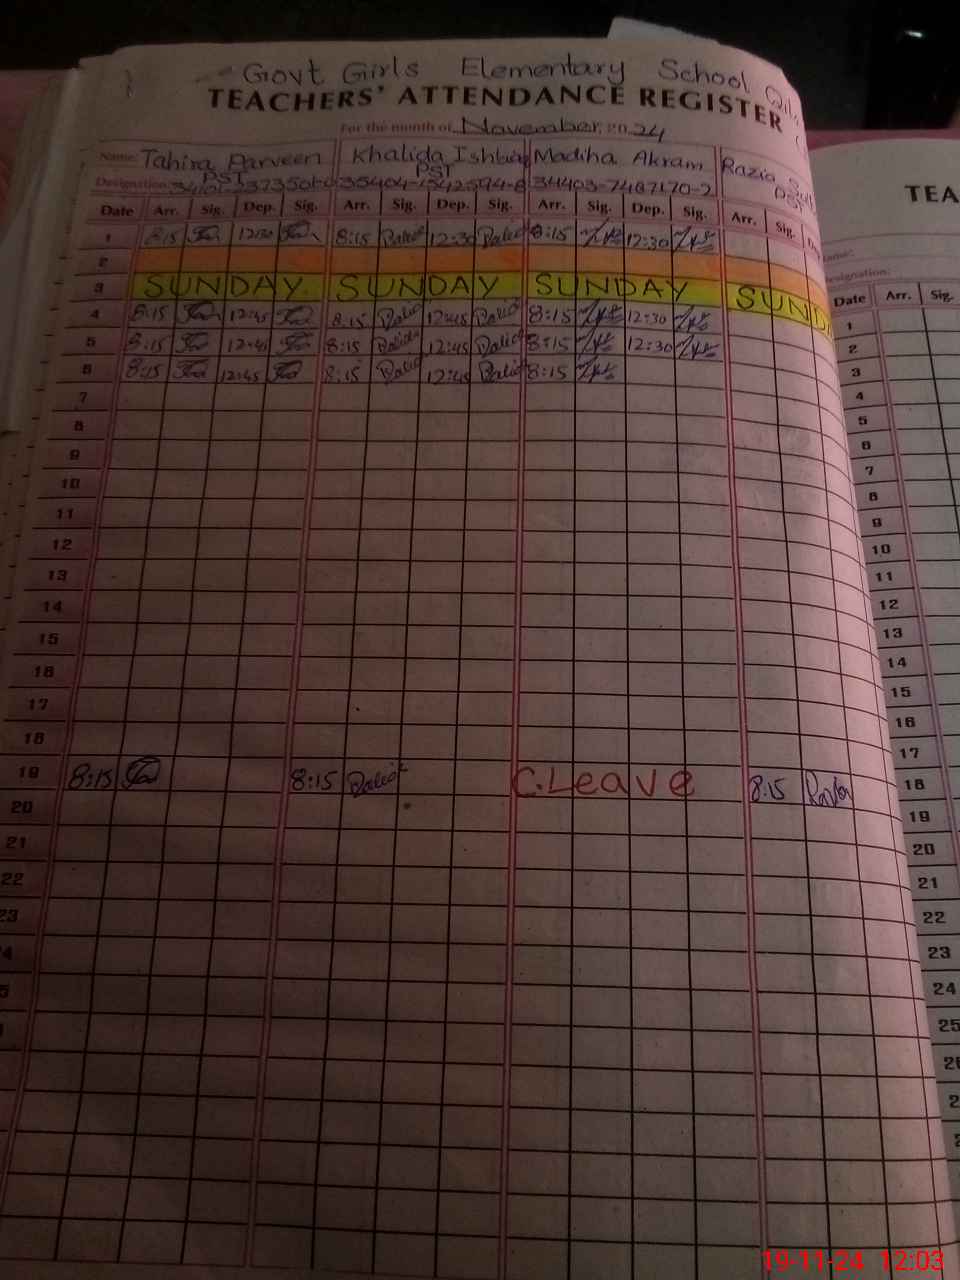 Govt Girls Elementary School
TEACHERS' ATTENDANCE REGISTER
For the month of November 2024
Name: Tahira Parveen Khalida Ishtiaq Madiha Akram Razia
PST PST PST
Designation: 35404-1542594-8 34403-7487170-2
Date Arr. Sig. Dep. Sig. Arr. Sig. Dep. Sig. Arr. Sig. Dep. Sig. Arr. Sig.
1 8:15 12:30 8:15 12:30 8:15 12:30
2
3 SUNDAY. SUNDAY SUNDAY SUND
4 8:15 12:45 8:15 12:45 8:15 12:30
5 8:15 12:45 8:15 12:45 8:15 12:30
6 8:15 12:45 8:15 12:45 8:15
7
8
9
10
11
12
13
14
15
16
17
18
19 8:15 8:15 C.Leave 8:15
20
21
22
23
TEA
Name:
Designation:
Date Arr. Sig.
1
2
3
4
5
6
7
8
9
10
11
12
13
14
15
16
17
18
19
20
21
22
23
24
25
19-11-24 12:03